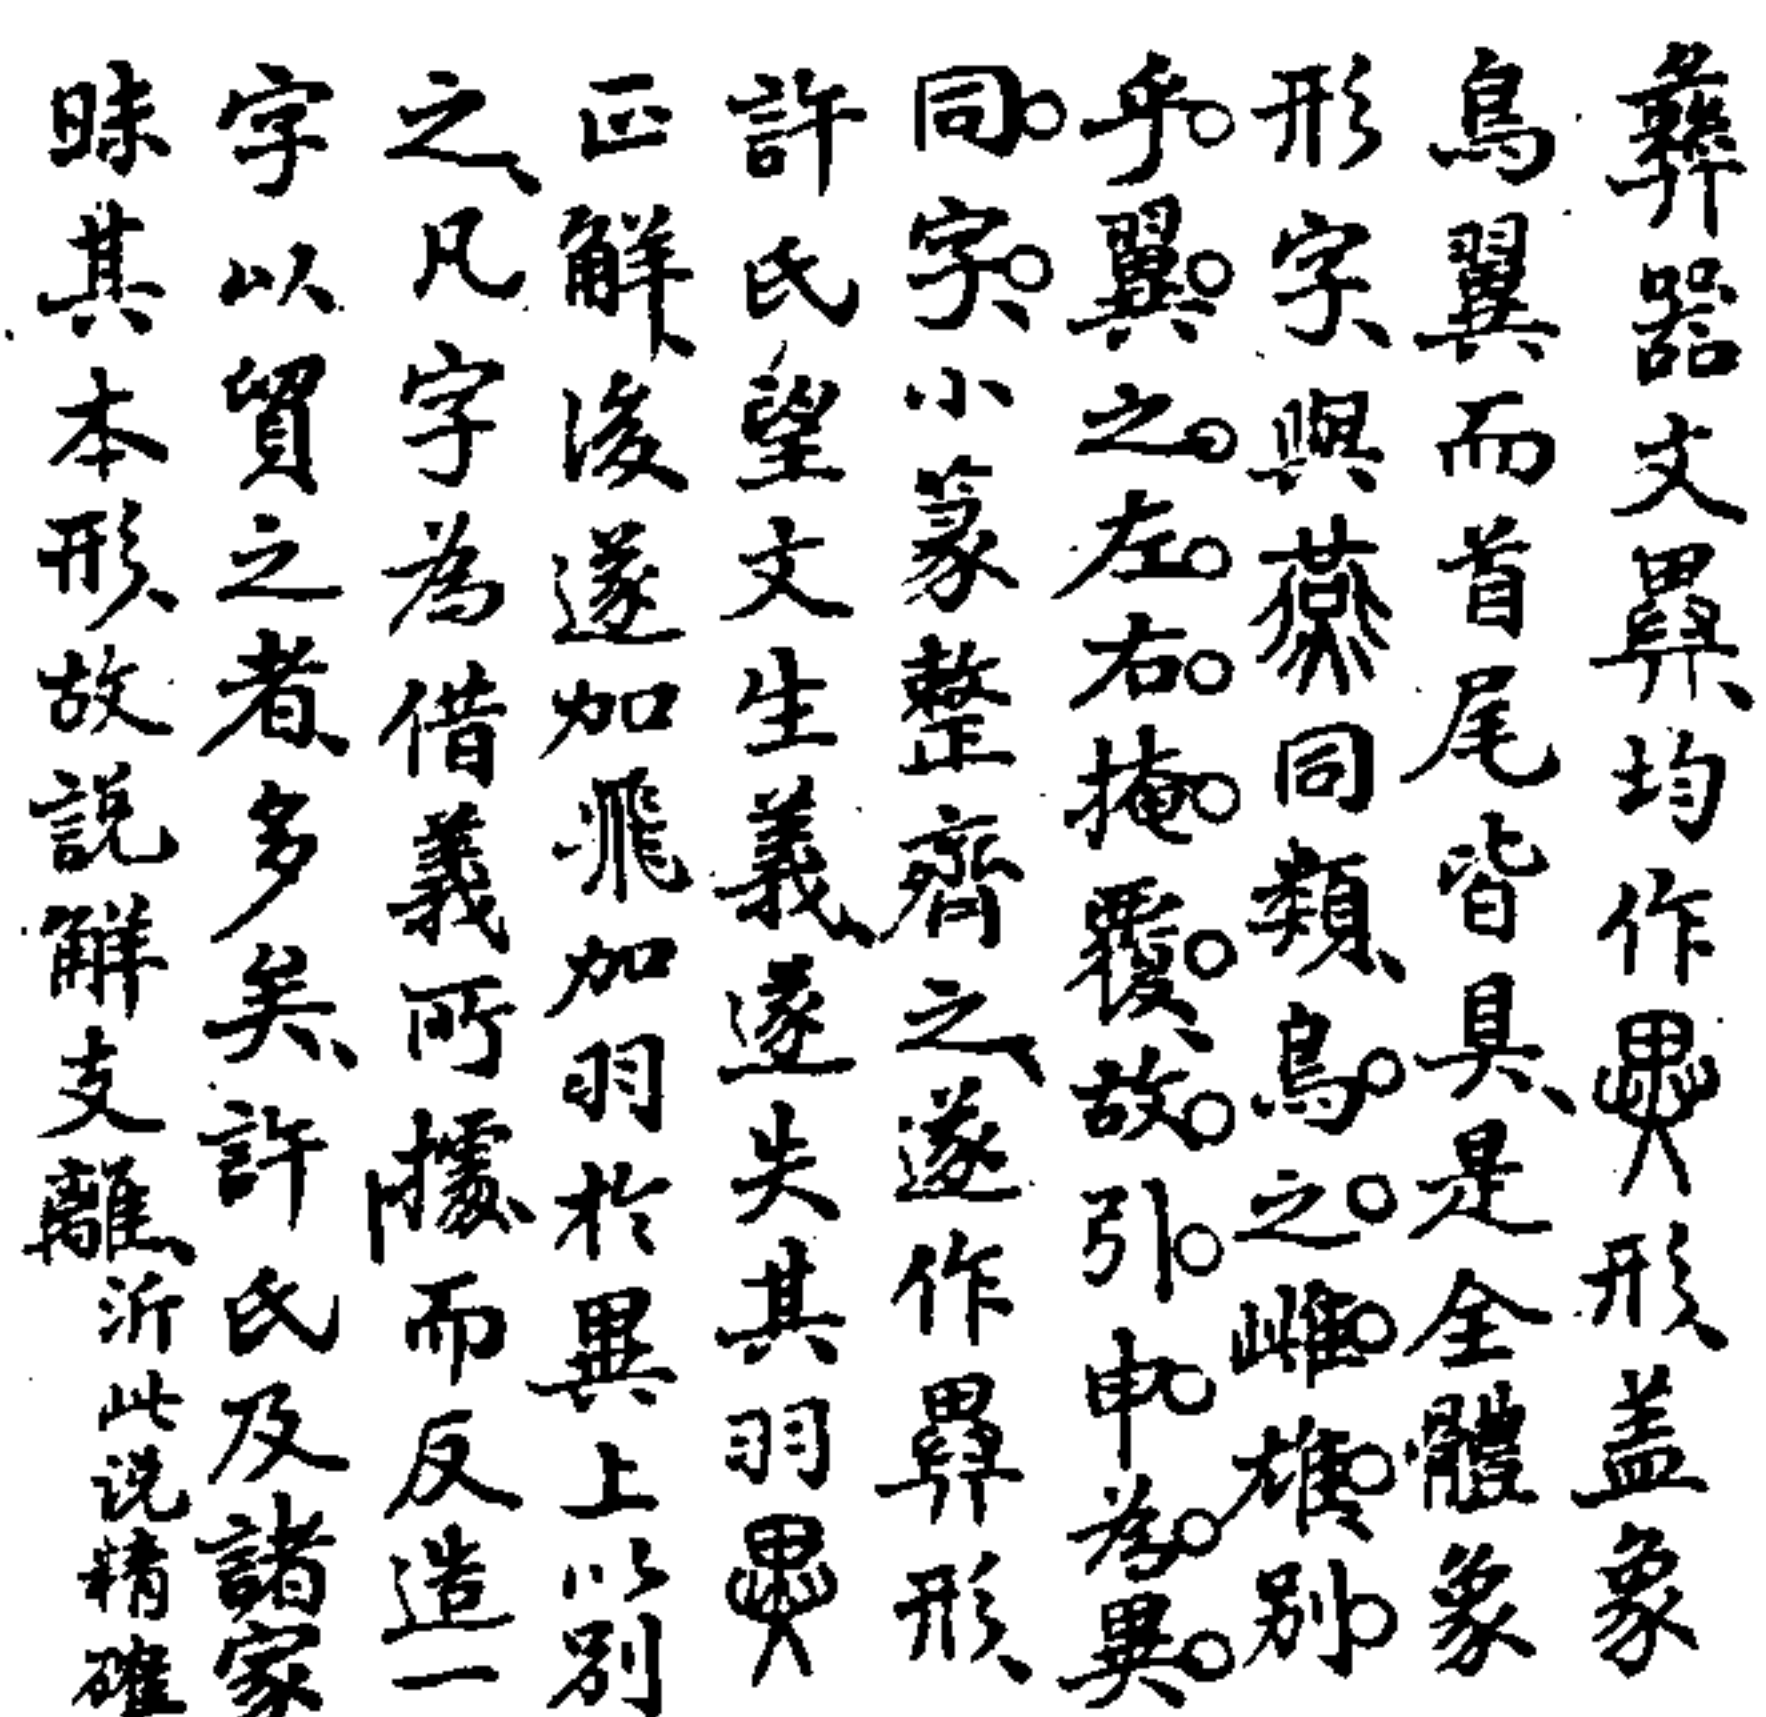 彝器文𢌿均作形、蓋象
鳥翼而首尾皆具、是全體象
形字、與燕同類、鳥。之。雌。雄。別。
乎。翼。之。左。右。掩。覆、故。引。申。為。異。
同。字。、小篆整齊之、遂作𢌿形、
許氏望文生義、遂失其羽
正解、後遂加飛加羽於異上以別
之、凡字為借義所據而反造一
字以貿之者、多矣、許氏及諸家
昧其本形、故說解支離、
沂此说精確